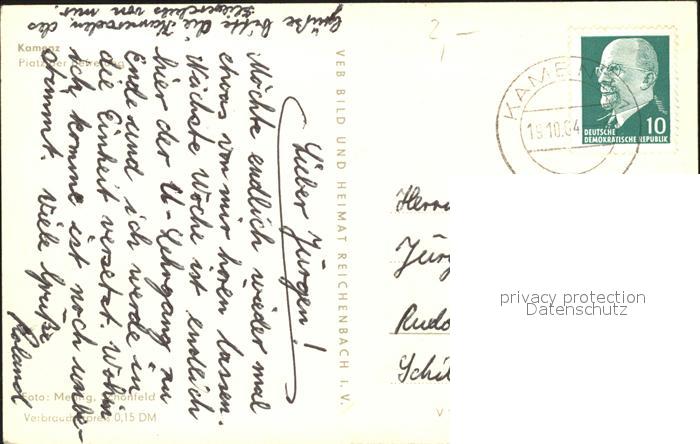 Kamenz
Platz der Befreiung
Grüße bitte die Kameraden des
Fliegerclubs von mir.
Lieber Jürgen!
Möchte endlich wieder mal
etwas von mir hören lassen.
Nächste Woche ist endlich
hier der U-Lehrgang zu
Ende und ich werde in
die Einheit versetzt. Wohin
ich komme ist noch unbe-
stimmt. Viele Grüße
Roland
Foto: Schönfeld
Verbraucherpreis 0,15 DM
VEB BILD UND HEIMAT REICHENBACH I. V.
2,-
KAMENZ
19.10.64
10
DEUTSCHE
DEMOKRATISCHE REPUBLIK
Herrn
Jürg
Rudo
Schil
V
privacy protection
Datenschutz